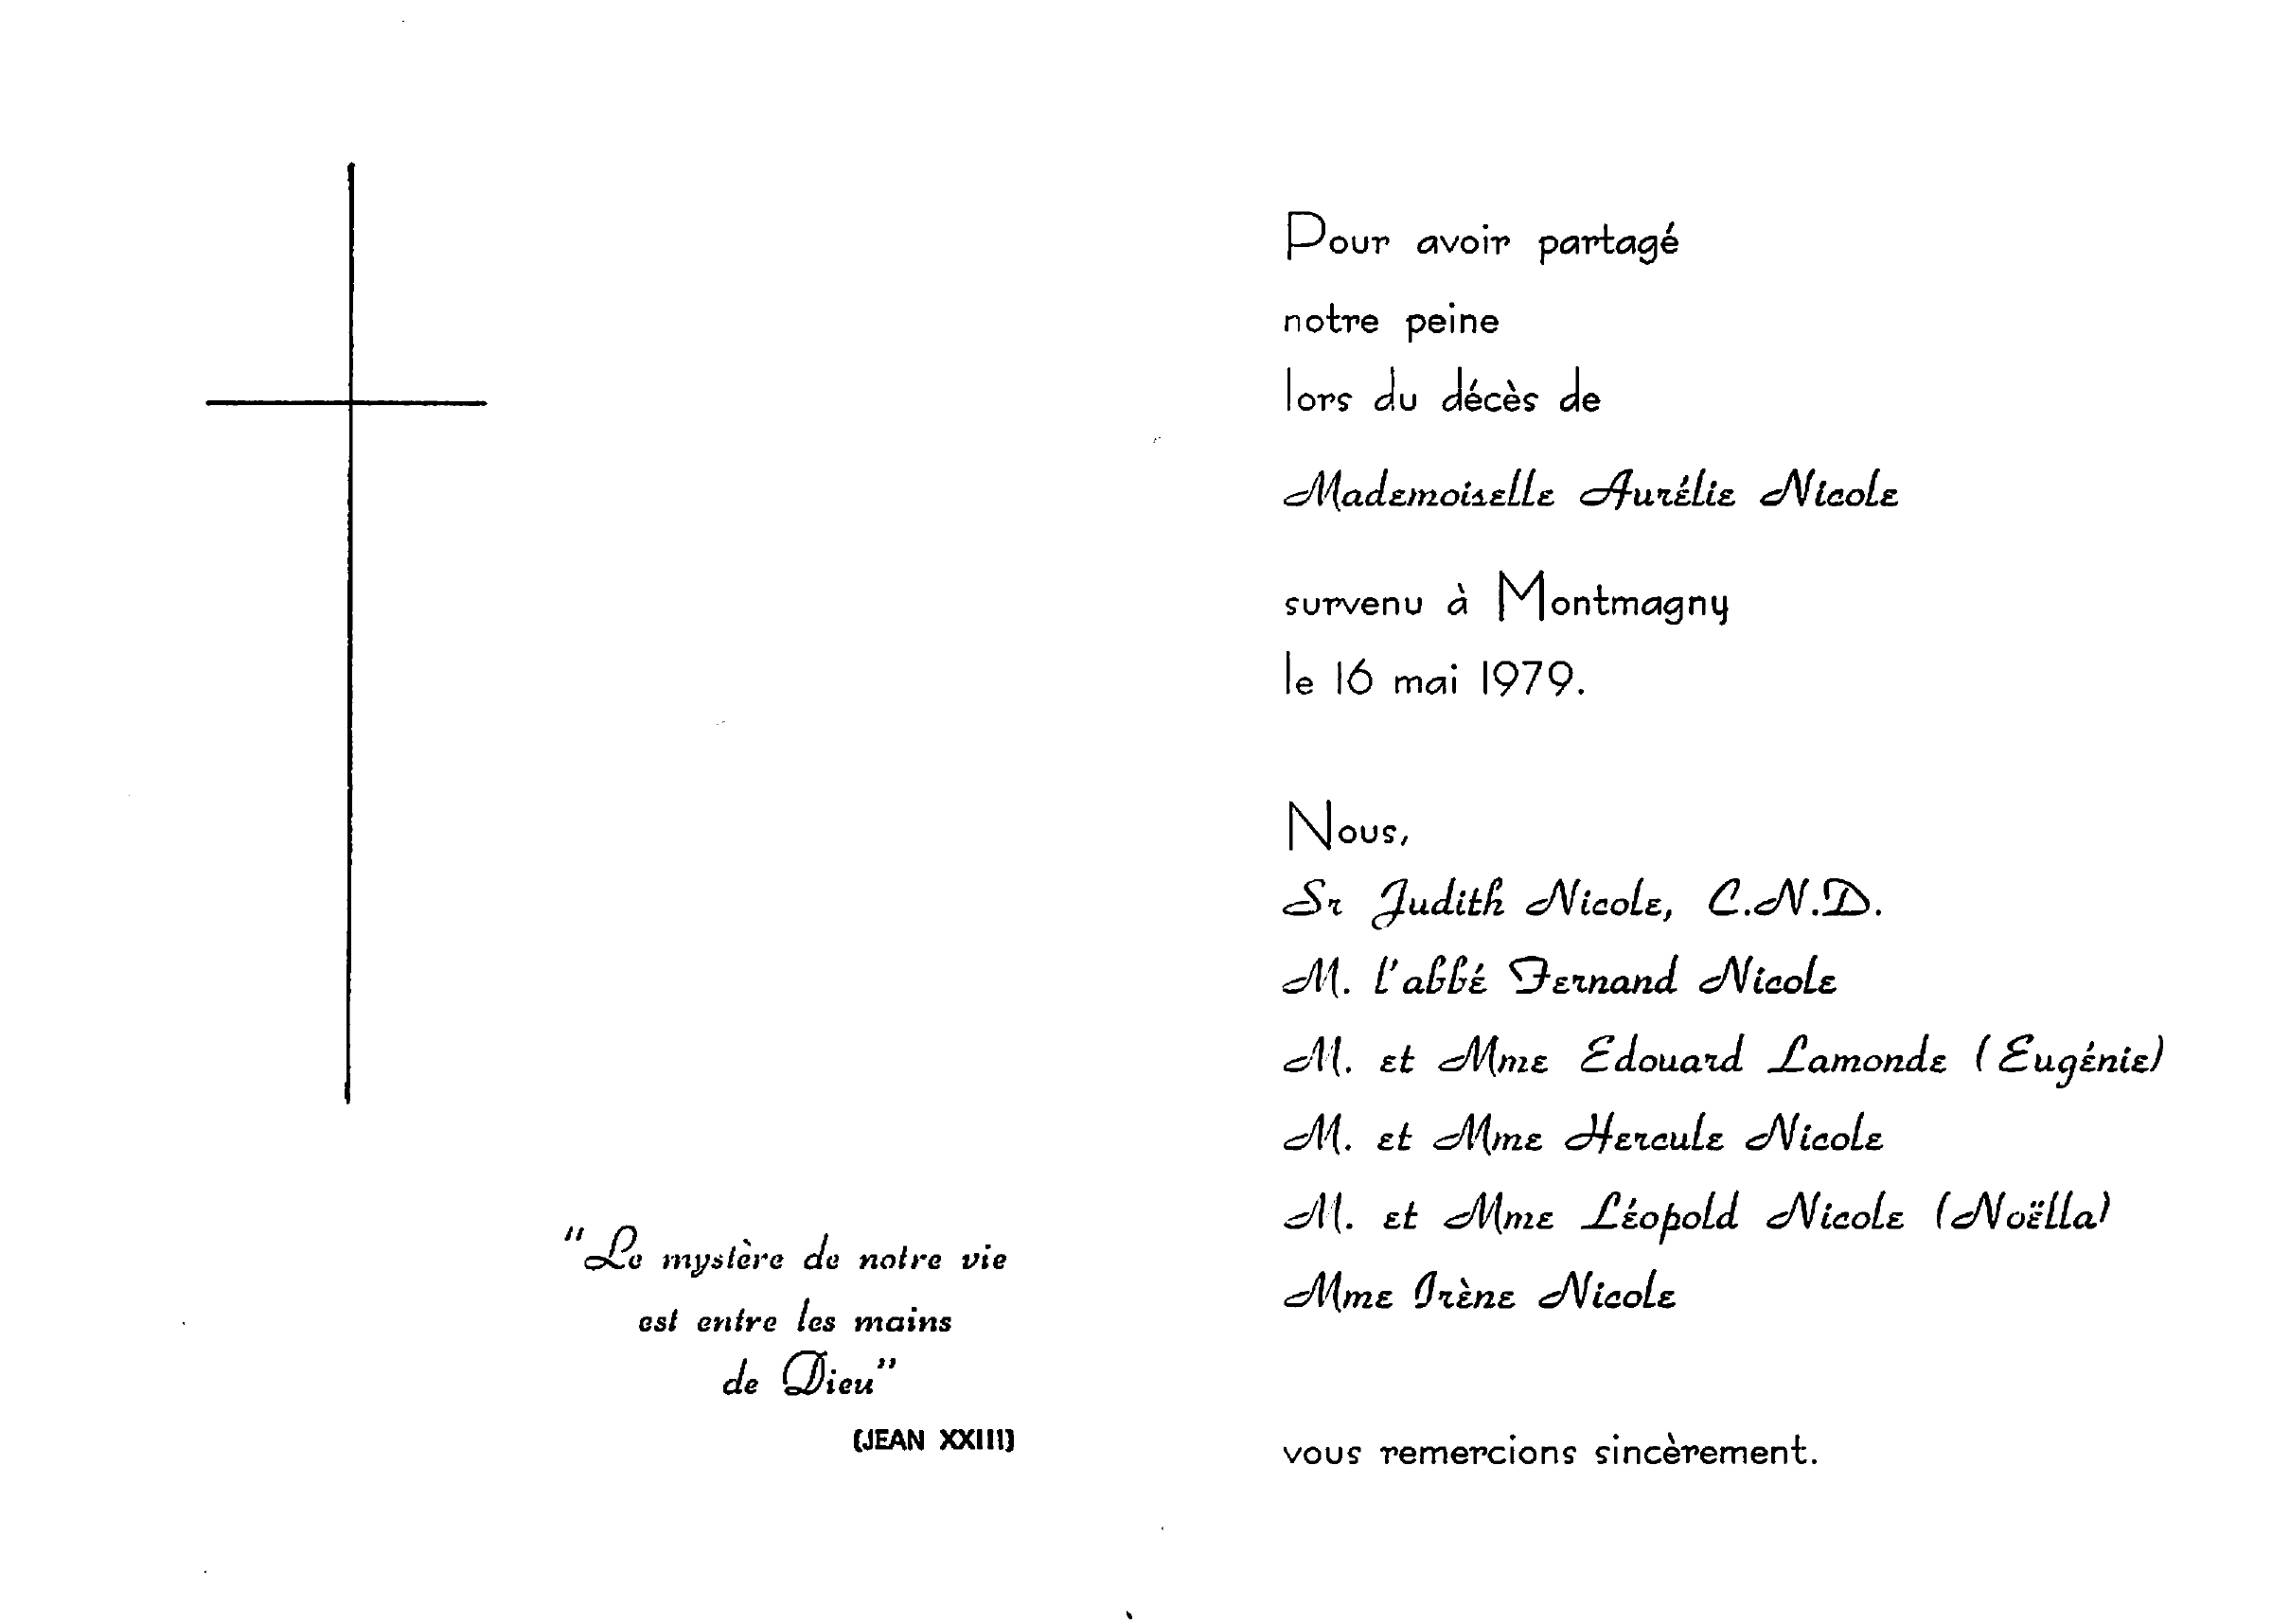 "Le mystère de notre vie
est entre les mains
de Dieu"
(JEAN XXIII)
Pour avoir partagé
notre peine
lors du décès de
Mademoiselle Aurélie Nicole
survenu à Montmagny
le 16 mai 1979.
Nous,
Sr Judith Nicole, C.N.D.
M. l'abbé Fernand Nicole
M. et Mme Edouard Lamonde (Eugénie)
M. et Mme Hercule Nicole
M. et Mme Léopold Nicole (Noëlla)
Mme Irène Nicole
vous remercions sincèrement.